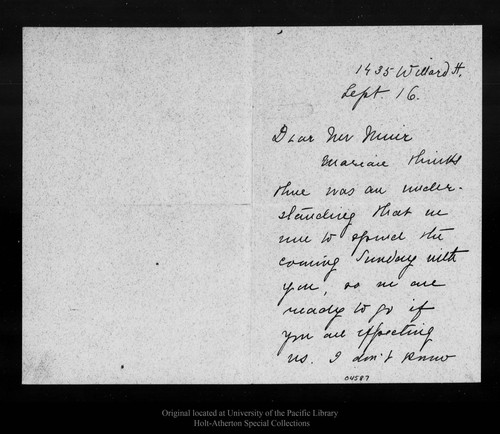 1435 Willard St.
Sept. 16.
Dear Mr Muir
Marian thinks
there was an under-
standing that we
were to spend the
coming Sunday with
you, so we are
ready to go if
you are expecting
us. I don't know
04587
Original located at University of the Pacific Library
Holt-Atherton Special Collections